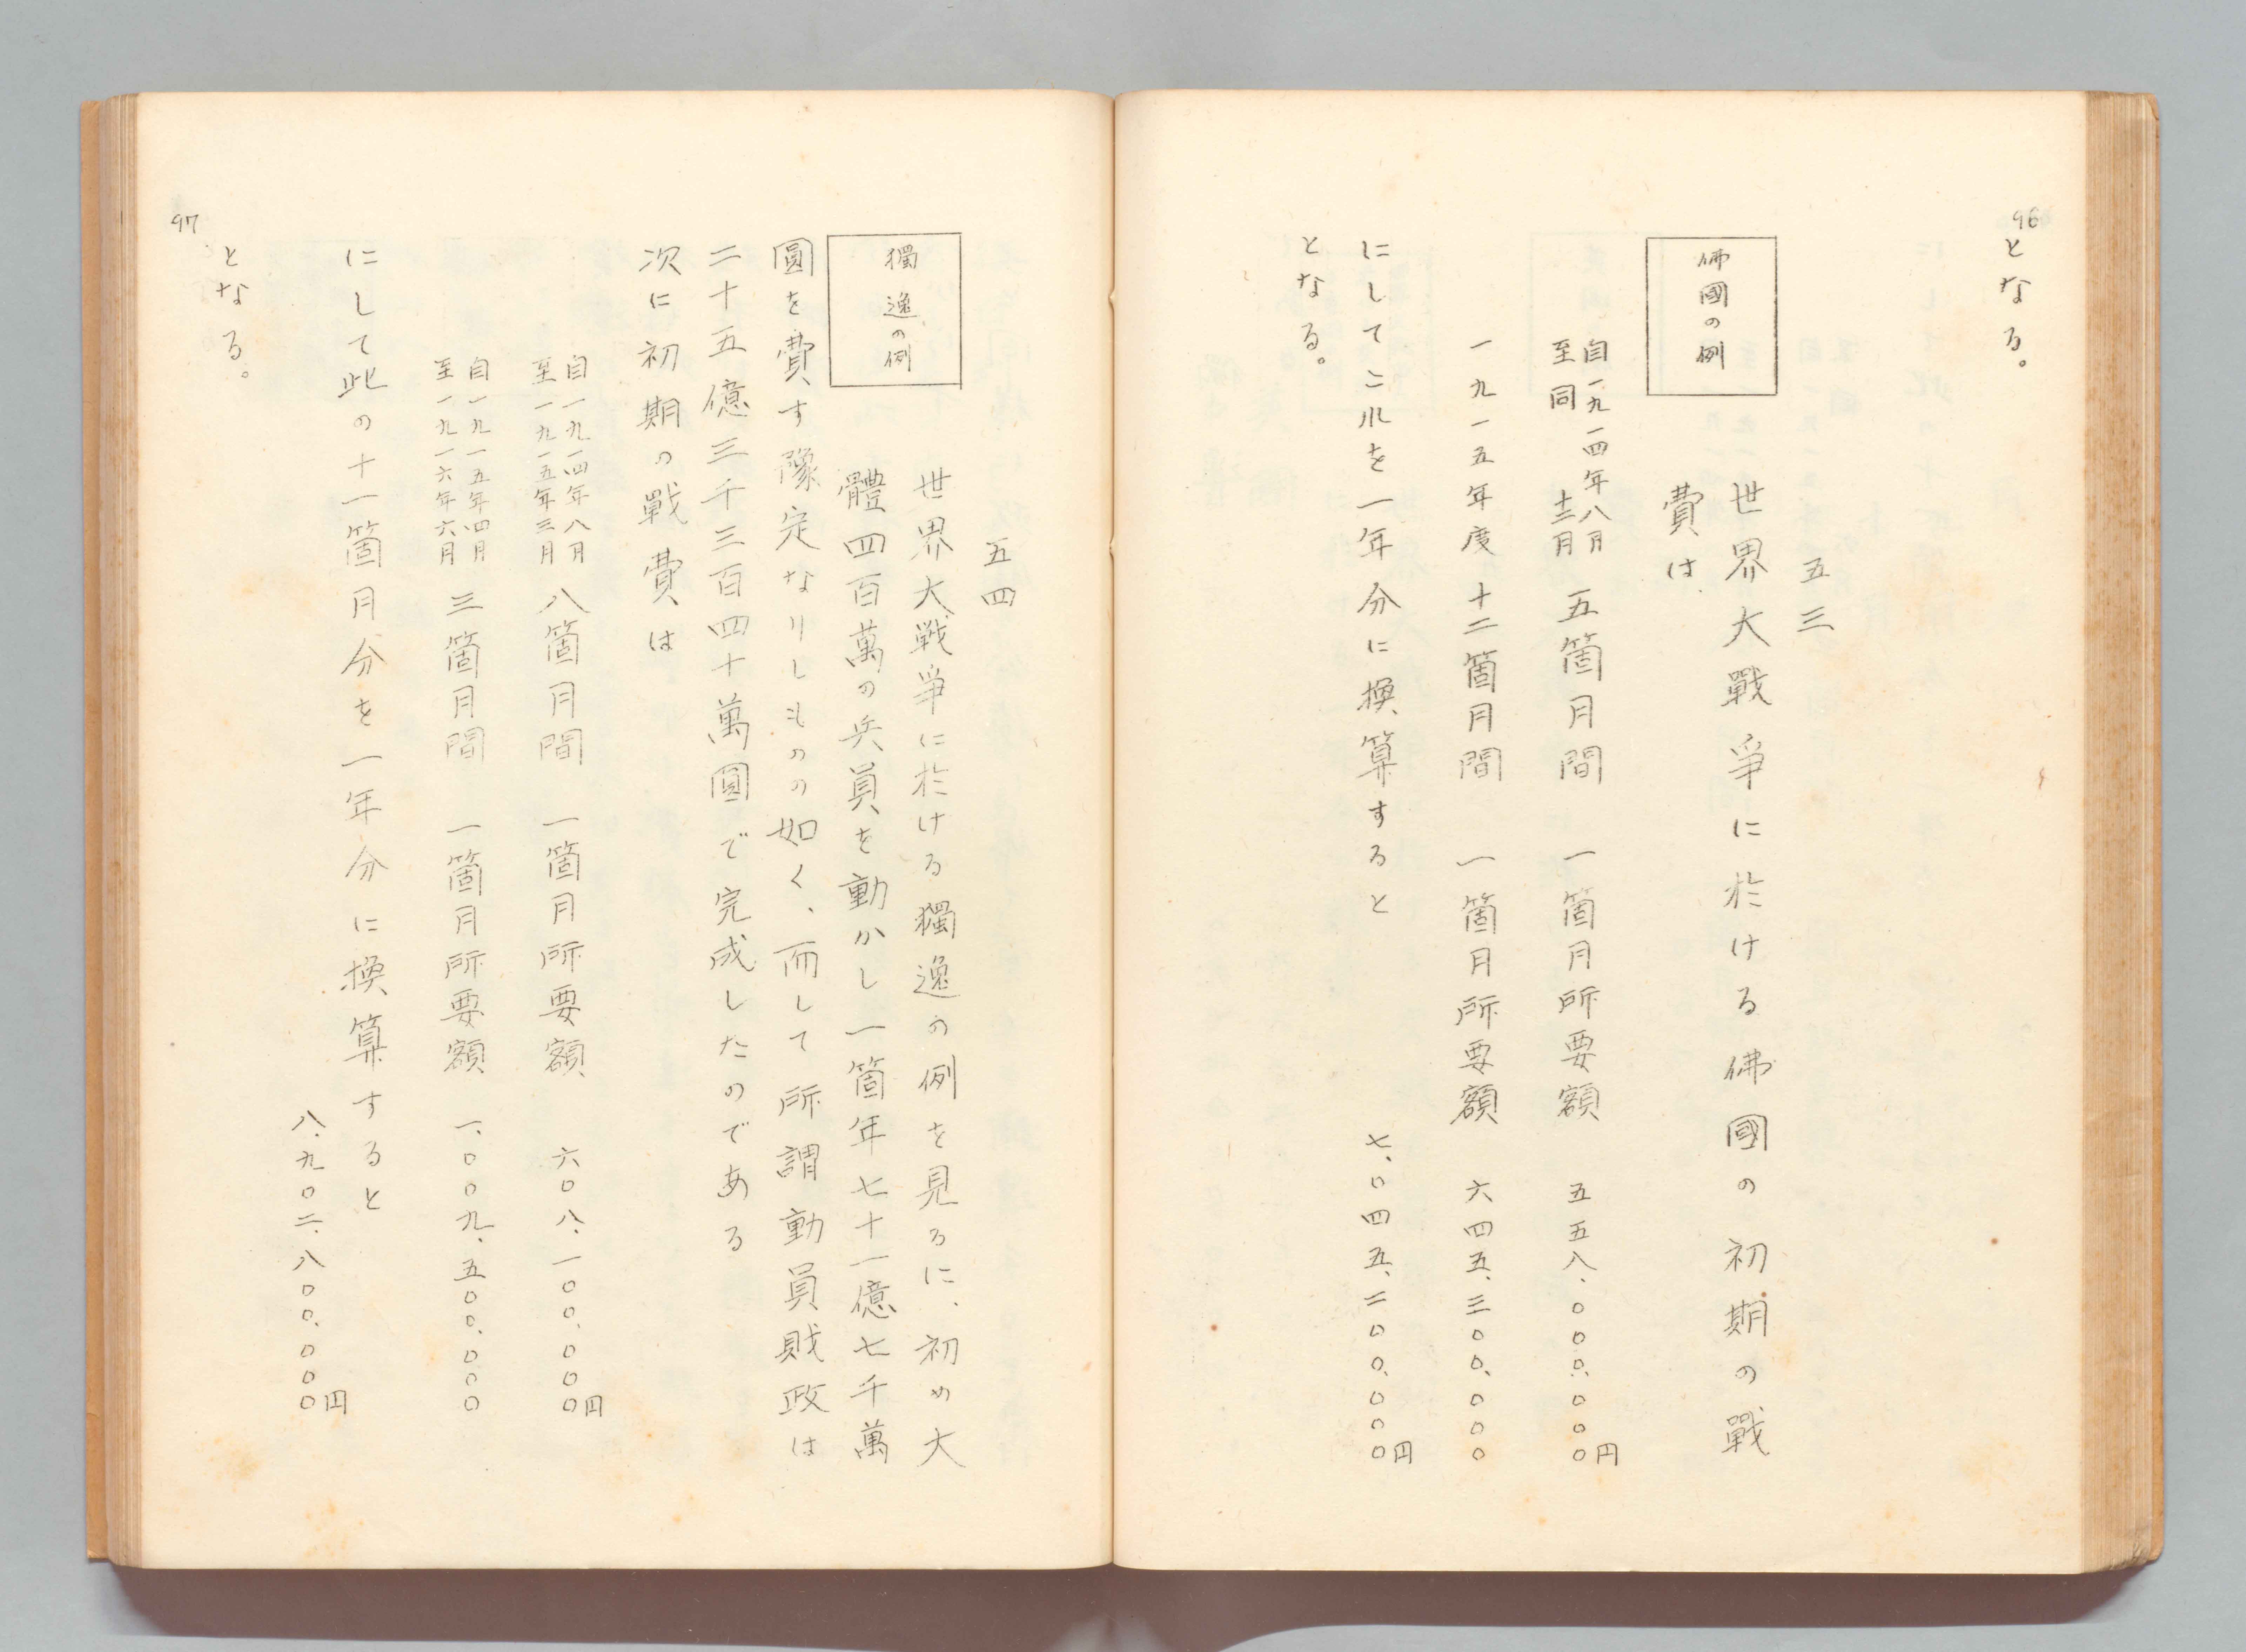 96
となる。
五三
佛國の例
世界大戰爭に於ける佛國の初期の戰
費は
自一九一四年八月
至同十二月
五箇月間 一箇月所要額 五五八、〇〇〇、〇〇〇円
一九一五年度 十二箇月間 一箇月所要額 六四五、三〇〇、〇〇〇
にしてこれを一年分に換算すると 七、〇四五、二〇〇、〇〇〇円
となる。
五四
獨逸の例
世界大戦爭に於ける獨逸の例を見るに、初め大
體四百萬の兵員を動かし一箇年七十一億七千萬
圓を費す豫定なりしものの如く、而して所謂動員財政は
二十五億三千三百四十萬圓で完成したのである
次に初期の戰費は
自一九一四年八月
至一九一五年三月
八箇月間 一箇月所要額 六〇八、一〇〇、〇〇〇円
自一九一五年四月
至一九一六年六月
三箇月間 一箇月所要額 一、〇〇九、五〇〇、〇〇〇
にして此の十一箇月分を一年分に換算すると
八、九〇二、八〇〇、〇〇〇円
となる。
97